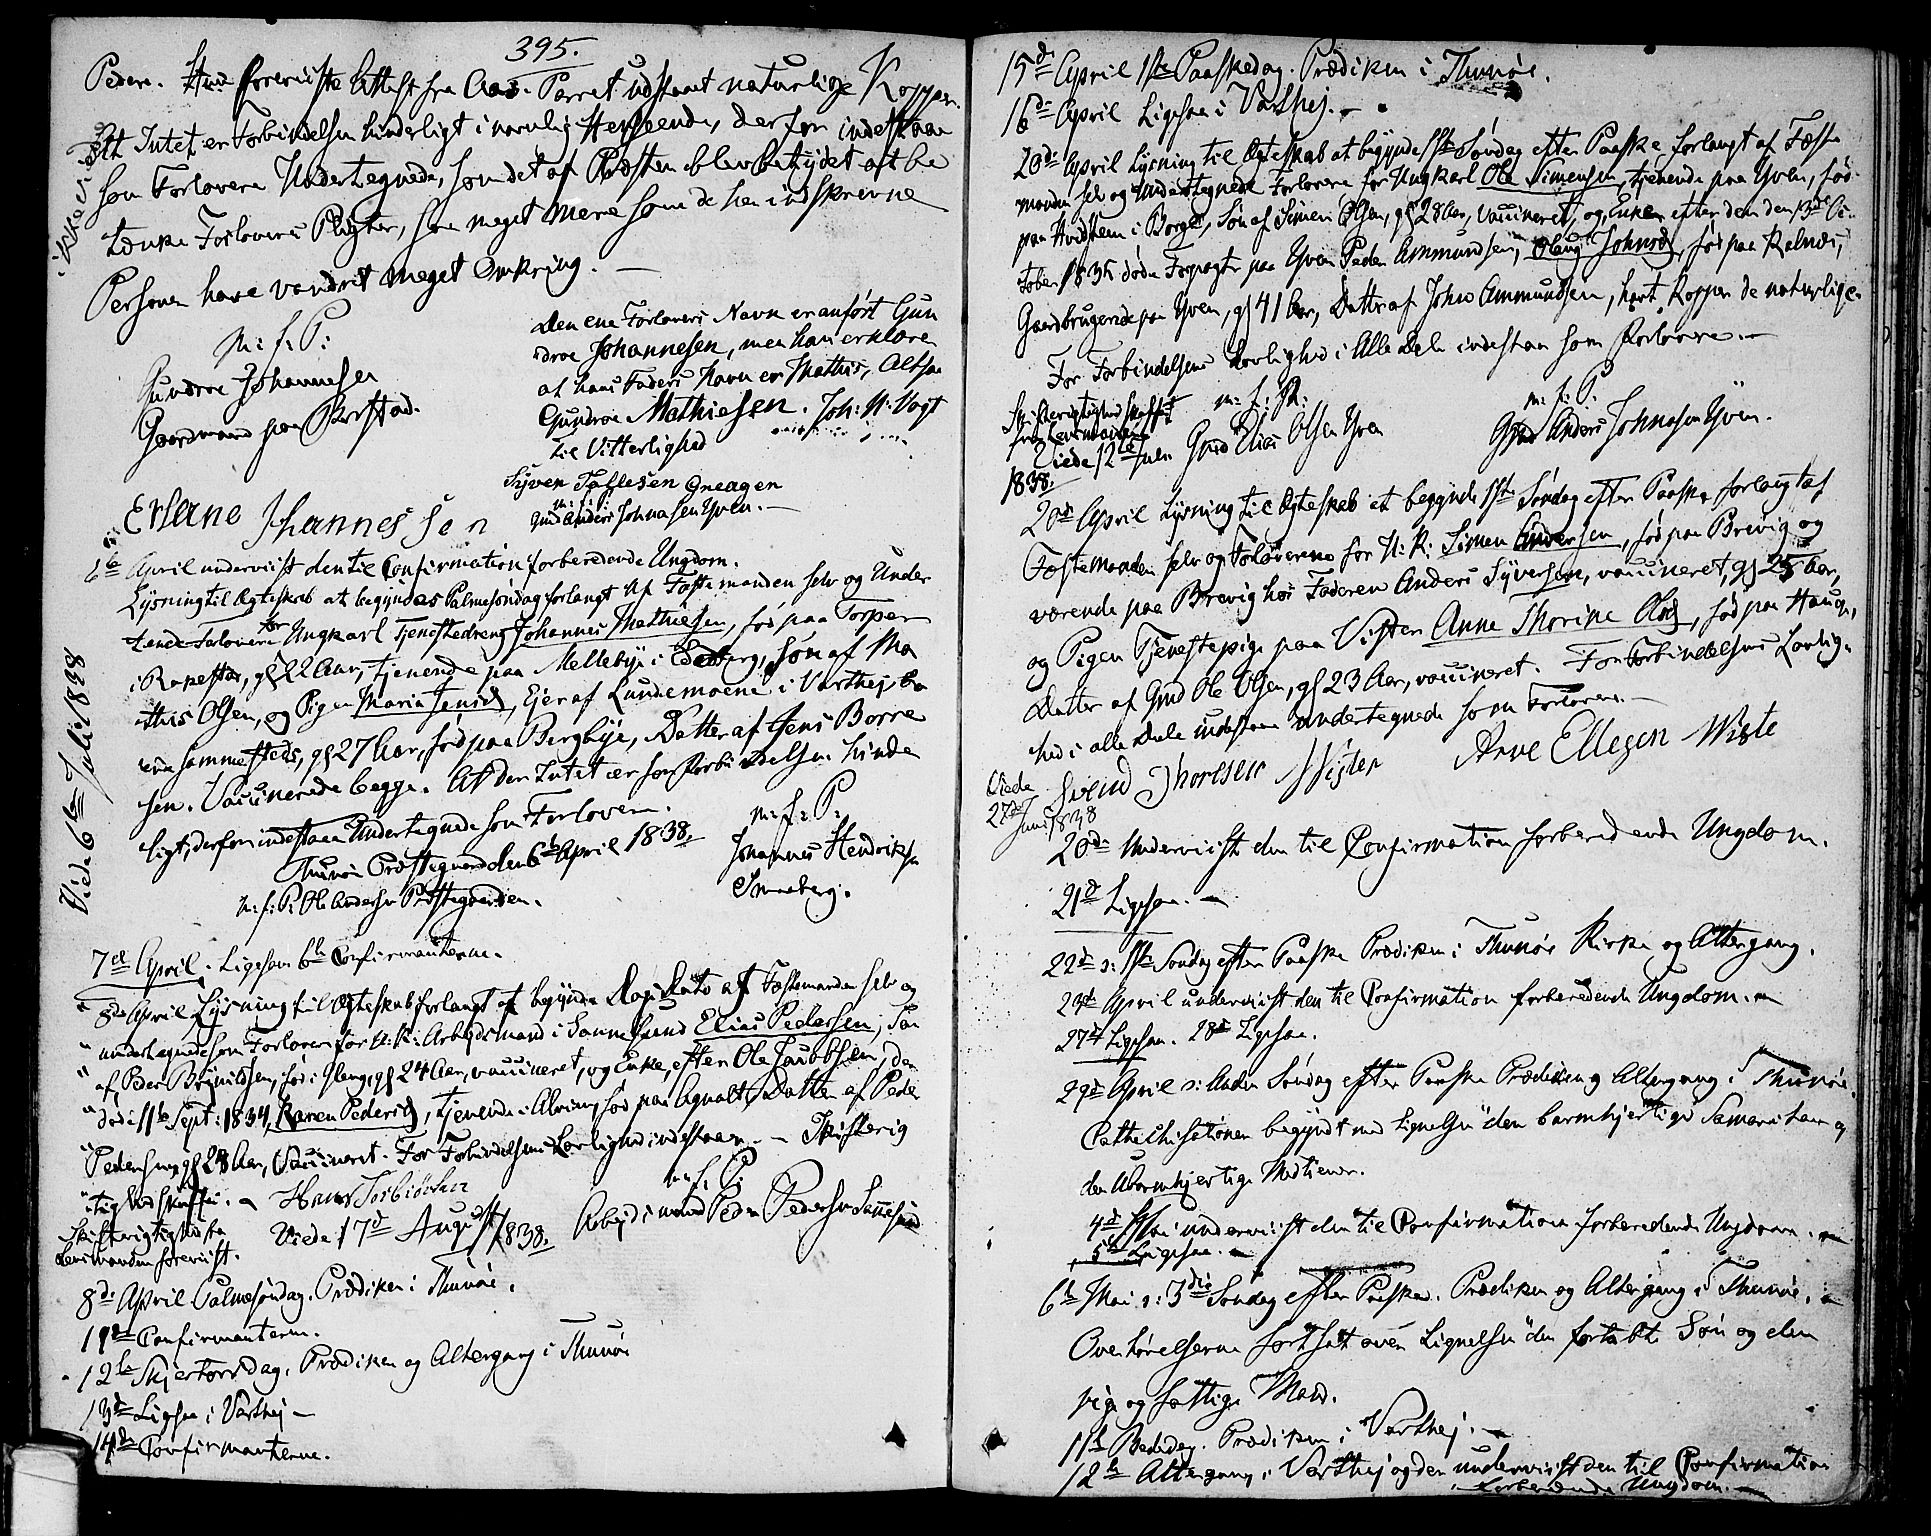 395.
Peder. Hun foreviiste Attest fra Aas. Parret udstaaet naturlige Kopper.
At Intet er Forbindelsen hinderligt i novnlig Henseende, derfor indestaae
som Forlovere Undertegnede, som det af Præsten blev betydet at be
tænke Forloveres Pligter, saa meget mere som de her indskrevne
Personer have vandret meget omkring. —
m: f: P:
Gundroe Johannesen
Gaardmand paa
Den ene Forlovers Navn er anført Gun
droe Johannesen, men han erklærer
at hans Faders Navn er Mathis, Altsaa
Gundroe Mathiesen. Joh: N: Vogt
til Vitterlighed
Syver
m: f: P:
Gmd Anders Johnasen Yven. —
Erlane Jhannessen
6te April underviist den til Confirmation forberedende Ungdom.
Lysning til Ægteskab at begyndes Palmesøndag forlangt af Fæstemanden selv og Under
tegnede Forlovere for Ungkarl Tjenestedreng Johannes Mathiesen, fød paa Torper
i Rakestad, gl 22 Aar, tjenende paa Mellebye i Edsberg, Søn af Ma
this Olsen, og Pigen Maria Jensd, Ejer af Lundemoene i Varthej, bo
ende sammesteds, gl 27 Aar, fød paa Bergbye, Datter af Jens Borre
sen. Vaccinerede begge. At der Intet er for Forbindelsen hinder
ligt, derfor indestaae Undertegnede som Forlovere.
Thunøe Præstegaard den 6te April 1838.
m: f: P:
Johannes Hendriksen
m: f: P: Ole Andersen Præstegaarden.
Viede 6te Juli 1838
7de April. Ligesaa Confirmanterne.
8de April Lysning til Ægteskab forlangt at begynde af Fæstemanden selv og
undertegnede som Forlovere for U: K: Arbejdsmand i Sannesund Elias Pedersen, Søn
af Peder Brynildsen, fød i gl 24 Aar, vaccineret, og Enke efter Ole Jacobsen, der
døde 11te Sept: 1834, Karen Pedersd, tjenende i fød paa Agnalt, Datter af Peder
Pedersen, gl 28 Aar, Vaccineret. For Forbindelsens Lovlighed indestaae — Skifterig
tighed skaffes. Hans Torbiørnsen
m: f: P:
Arbejdsmand Peder Pedersen Sannesund
Skifterigtighed fra
Lensmanden foreviist.
Viede 17de August 1838.
8de April Palmesøndag. Prædiken i Thunøe.
11te Confirmanterne.
12te Skjertorsdag. Prædiken og Altergang i Thunøe
13de Ligesaa i Varthej —
14de Confirmanterne.
15de April 1ste Paaskedag. Prædiken i Thunøe.
16de April Ligesaa i Varthej. —
20de April Lysning til Ægteskab at begynde 1ste Søndag efter Paaske forlangt af Fæste
manden selv og Undertegnede Forlovere for Ungkarl Ole Simensen, tjenende paa Yven, fød
paa Hvidsteen i Borge, Søn af Simen Olsen, gl 28 Aar, vaccineret, og Enken efter den den 13de Oc
tober 1835 døde Forpagter paa Yven Peder Ammundsen, Olaug Johnsd, fød paa Kalnæs,
Gaardbrugerske paa Yven, gl 41 Aar, Datter af John Ammundsen, havt Kopper de naturlige.
For Forbindelsens Lovlighed i Alle Dele indestaae som Forlovere. —
Skifterigtighed skaffet
fra Lensmanden
Viede 12te Juli
1838.
m: f: P:
Gmd Elias Olsen Yven
m: f: P:
Gmd Anders Johnasen Yven.
20de April Lysning til Ægteskab at begynde 1ste Søndag efter Paaske forlangt af
Fæstemanden selv og Forloverne for U: K: Simen Andersen, fød paa Brevig og
værende paa Brevig hos Faderen Anders Syversen, vaccineret, gl 25 Aar,
og Pigen Tjenestepige paa Visten Anne Thorine Olsd, fød paa Hauge,
Datter af Gmd Ole Olsen, gl 23 Aar, vaccineret. For Forbindelsens Lovlig-
hed i alle Dele indestaae undertegnede som Forlovere. —
Viede
27de Juni 1838
Svend Thoresen Visten
Arve Ellegen Wiste
20de Underviist den til Confirmation forberedende Ungdom.
21de Ligesaa. —
22de s: 1ste Søndag efter Paaske Prædiken i Thunøe Kirke og Altergang.
23de April underviist den til Confirmation forberedende Ungdom. —
27de Ligesaa. 28de Ligesaa.
29de April s: Anden Søndag efter Paaske Prædiken og Altergang i Thunøe.
Cathechisationen begyndt med Lignelsen "den barmhjertige Samaritan og
den Ubarmhjertige Medtiener.
4de Mai underviist den til Confirmation forberedende Ungdom. —
5te Ligesaa. —
6te Mai s: 3die Søndag efter Paaske. Prædiken og Altergang i Thunøe. —
Overhørelserne fortsat over Lignelsen "den fortabte Søn og den
rige og fattige Mand.
11te Bededag. Prædiken i Varthej. —
12te Altergang i Varthej og der underviist den til Confirmation
forberedende Ungdom. —